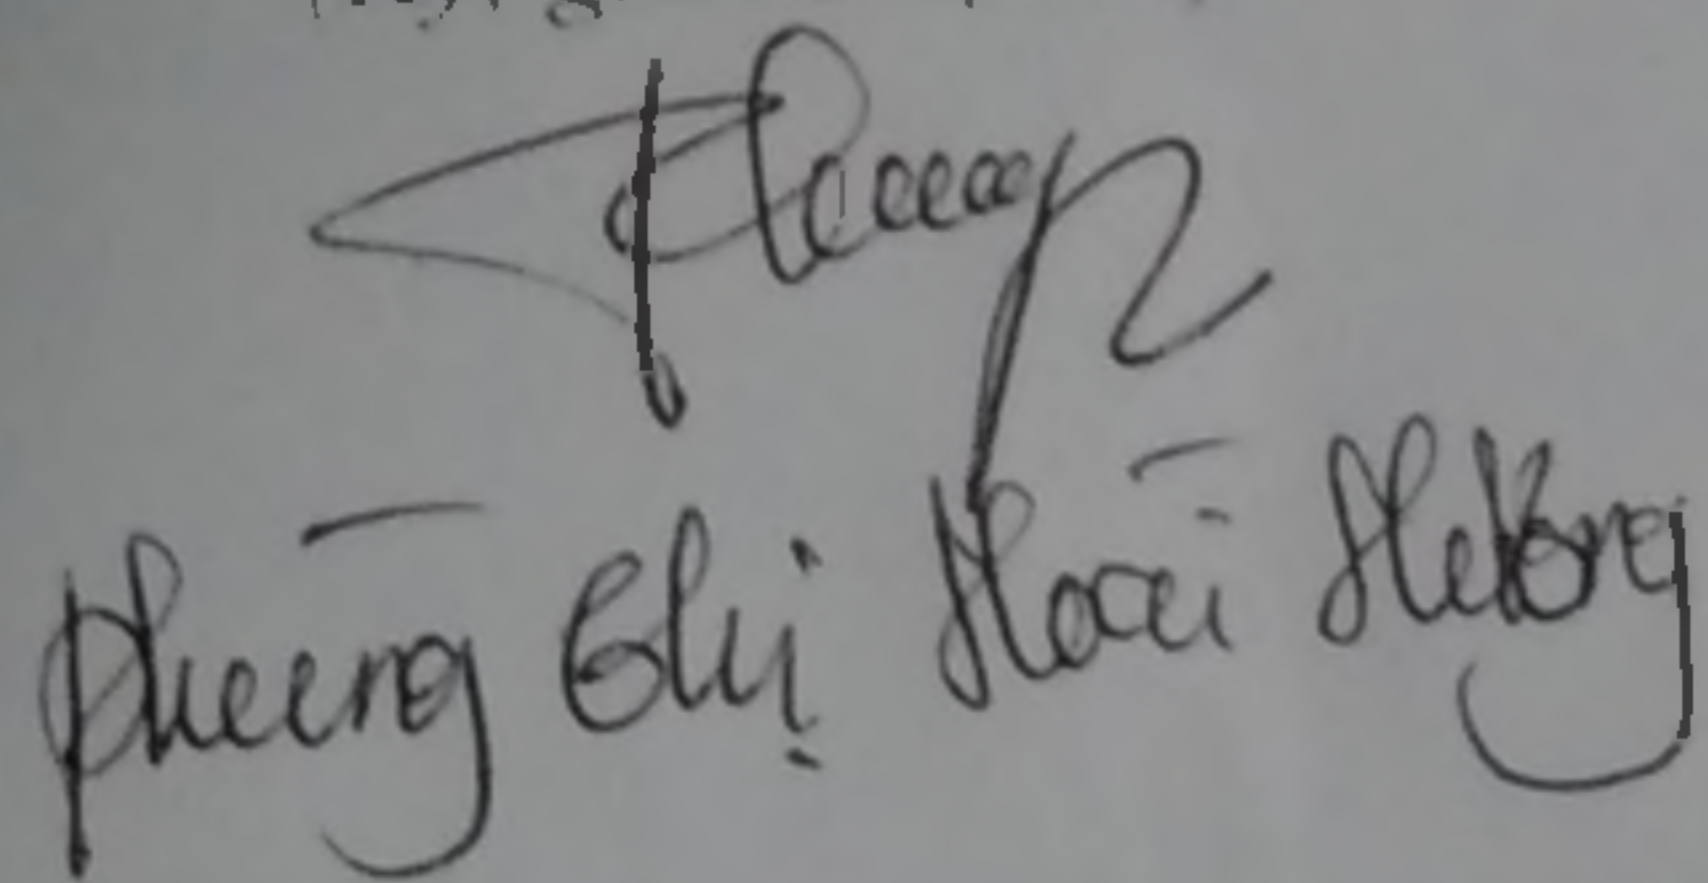 Phùng Thị Hoài Hương